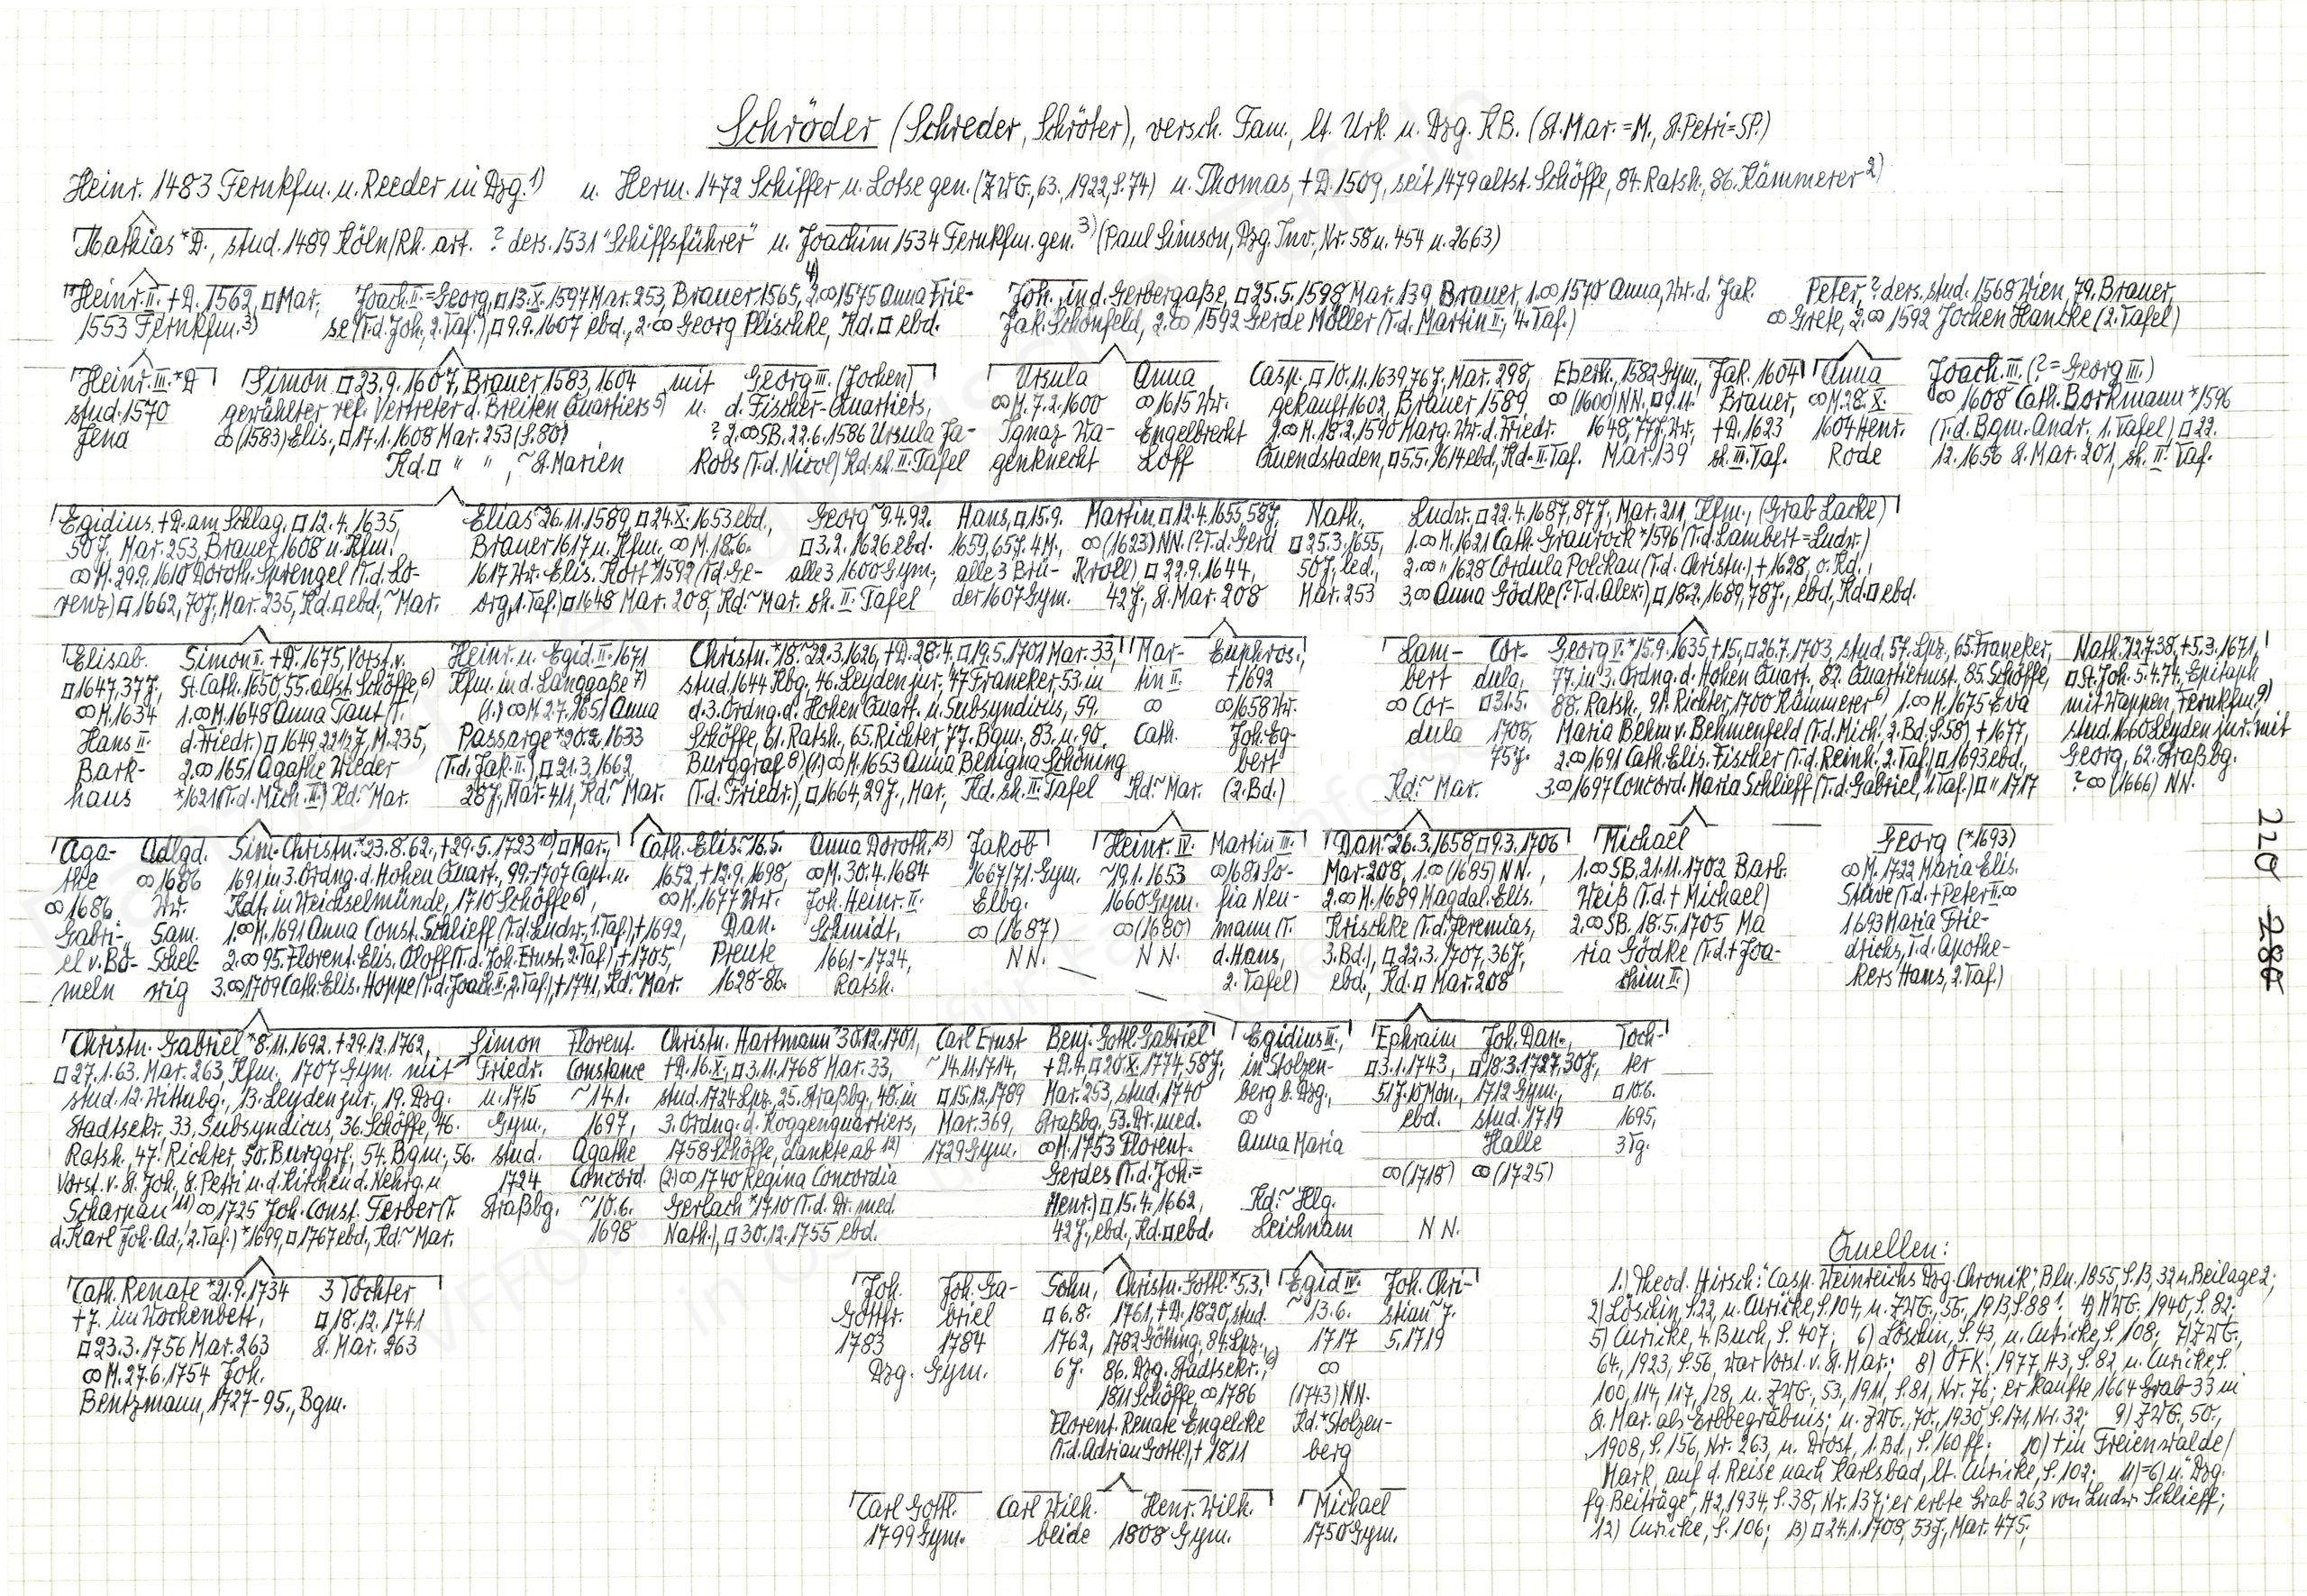 Schröder (Schreder, Schröter), versch. Fam., lt. Urk. u. Dzg. KB. (St. Mar. = M., St. Petri = SP.)
Heinr. 1483 Fernkfm. u. Reeder in Dzg. 1) u. Herm. 1472 Schiffer u. Lotse gen. (ZWG., 63, 1922, S. 74) u. Thomas, + D. 1509, seit 1479 altst. Schöffe, 84. Ratsh., 86. Kämmerer 2)
Mathias * D., stud. 1489 Köln/Rh. art. ? ders. 1531 "Schiffsführer" u. Joachim 1534 Fernkfm. gen. 3) (Paul Simson, Dzg. Inv., Nr. 58 u. 454 u. 2663)
Heinr. II. + D. 1562, □ Mar.,
1553 Fernkfm. 3)
Joach. II. = Georg, □ 13. X. 1597 Mar. 253, Brauer 1565, 4) 2. ∞ 1575 Anna Frie-
se (T. d. Joh., 2. Taf.), □ 9.9. 1607 ebd., 2. ∞ Georg Plischke, Kd. □ ebd.
Joh. in d. Gerbergaße, □ 25.5. 1598 Mar. 139, Brauer, 1. ∞ 1570 Anna, Wr. d. Jak.
Jak. Schönfeld, 2. ∞ 1592 Gerde Möller (T. d. Martin II., 4. Taf.)
Peter, ? ders. stud. 1568 Wien, 79. Brauer,
∞ Grete, 2. ∞ 1592 Jochen Hancke (2. Tafel)
Heinr. III. * D
stud. 1570
Jena
Simon □ 23.9. 1607, Brauer 1583, 1604 mit Georg III. (Jochen)
gewählter ref. Vertreter d. Breiten Quartiers 5) u. d. Fischer-Quartiers,
∞ (1583) Elis., □ 17.1. 1608 Mar. 253 (S. 80) ? 2. ∞ SB. 22.6. 1586 Ursula Ja-
Kd. □ " ", ~ St. Marien Kobs (T. d. Nicol) Kd. sh. II. Tafel
Ursula
∞ M. 7.2. 1600
Ignaz Wa-
genknecht
Anna
∞ 1615 Wr.
Engelbrecht
Loff
Casp., □ 10.11. 1639, 76 J., Mar. 298,
gekauft 1602, Brauer 1589,
1. ∞ M. 18.2. 1590 Marg. Wr. d. Friedr.
Quendstaden, □ 5.5. 1614 ebd., Kd. II. Taf.
Eberh., 1582 Gym.,
∞ (1600) NN. □ 9.11.
1648, 77 J., Wr.,
Mar. 139
Jak. 1604
Brauer,
+ D. 1623
sh. III. Taf.
Anna
∞ M. 28. X.
1604 Henr.
Rode
Joach. III. (? = Georg III.)
∞ 1608 Cath. Borkmann * 1596
(T. d. Bgm. Andr., 1. Tafel) □ 22.
12. 1656 St. Mar. 201, sh. II. Taf.
Egidius, + D. am Schlag, □ 12.4. 1635,
50 J., Mar. 253, Brauer 1608 u. Kfm.
∞ M. 29.9. 1610 Doroth. Sprengel (T. d. Lo-
renz) □ 1662, 70 J., Mar. 235, Kd. □ ebd., ~ Mar.
Elias ~ 26.11. 1589, □ 24. X. 1653 ebd.,
Brauer 1617 u. Kfm., ∞ M. 18.6.
1617 Wr. Elis. Kort * 1592 (T. d. Ge-
org, 1. Taf.) □ 1648 Mar. 208, Kd. ~ Mar. sh. II. Tafel
Georg ~ 9.4. 92.
□ 3.2. 1626 ebd.
alle 3 1600 Gym.,
Hans, □ 15.9.
1659, 65 J. 4 M.,
alle 3 Brü-
der 1607 Gym.
Martin □ 12.4. 1655, 58 J.
∞ (1623) NN. (? T. d. Gerd
Kroll) □ 22.9. 1644,
42 J., St. Mar. 208
Nath.
□ 25.3. 1655,
50 J., led.,
Mar. 253
Ludw. □ 22.4. 1687, 87 J., Mar. 211, Kfm., (Grab Lacke)
1. ∞ M. 1621 Cath. Graurock * 1596 (T. d. Lambert = Ludw.)
2. ∞ " 1628 Cordula Polckau (T. d. Christn.) + 1628, o. Kd.,
3. ∞ Anna Gödke (? T. d. Alex.), □ 18.2. 1689, 78 J., ebd., Kd. □ ebd.
Elisab.
□ 1647, 37 J.,
∞ M. 1634
Hans II.
Bark-
haus
Simon II. + D. 1675, Vorst. v.
St. Cath. 1650, 55. altst. Schöffe, 6)
1. ∞ M. 1648 Anna Taut (T.
d. Friedr.) □ 1649, 22 1/2 J., M. 235,
2. ∞ 1651 Agathe Wieder
* 1621 (T. d. Mich. II.) Kd. ~ Mar.
Heinr. u. Egid. II. 1671
Kfm. in d. Langgaße 7)
(1.) ∞ M. 27. 1651 Anna
Passarge * 20.2. 1633
(T. d. Jak. II.) □ 21.3. 1662,
28 J., Mar. 411, Kd. ~ Mar.
Christn. * 18. ~ 22.3. 1626, + D. 28.4. □ 19.5. 1701 Mar. 33,
stud. 1644 Kbg., 46. Leyden jur., 47 Franeker, 53. in
d. 3. Ordng. d. Hohen Quart. u. Subsyndicus, 59.
Schöffe, 61. Ratsh., 65. Richter, 77. Bgm., 83. u. 90.
Burggraf 8) (1.) ∞ M. 1653 Anna Benigna Schöning
(T. d. Friedr.), □ 1664, 29 J., Mar., Kd. sh. II. Tafel
Mar-
tin II.
∞
Cath.
Kd. ~ Mar.
Euphros.,
+ 1692
∞ 1658 Wr.
Joh. Eg-
bert
(2. Bd.)
Lam-
bert
∞ Cor-
dula
Kd. ~ Mar.
Cor-
dula,
□ 31.5.
1708,
75 J.
Georg V. * 15.9. 1635, + 15., □ 26.7. 1703, stud. 57. Lpz., 65. Franeker,
77. in 3. Ordng. d. Hohen Quart., 82. Quartiermst., 85. Schöffe,
88. Ratsh., 91. Richter, 1700 Kämmerer 6) 1. ∞ M. 1675 Eva
Maria Behm v. Behmenfeld (T. d. Mich., 2. Bd., S. 58) + 1677,
2. ∞ 1691 Cath. Elis. Fischer (T. d. Reinh., 2. Taf.) □ 1693 ebd.,
3. ∞ 1697 Concord. Maria Schlieff (T. d. Gabriel, 1. Taf.) □ " 1717
Nath. ~ 12.7. 38, + 5.3. 1671,
□ St. Joh. 5.4. 74, Epitaph
mit Wappen, Fernkfm. 9)
stud. 1660 Leyden jur. mit
Georg, 62. Straßbg.
? ∞ (1666) NN.
Aga-
the
∞ 1686
Gabri-
el v. Bö-
meln
Adlgd.
∞ 1686
Wr.
Sam.
Schel-
wig
Sim. Christn. * 23.8. 62., + 29.5. 1723 10), □ Mar.,
1691 in 3. Ordng. d. Hohen Quart., 99.-1707 Capt. u.
Kdt. in Weichselmünde, 1710 Schöffe 6),
1. ∞ M. 1691 Anna Const. Schlieff (T. d. Ludw., 1. Taf.) + 1692,
2. ∞ 95. Florent. Elis. Oloff (T. d. Joh. Ernst, 2. Taf.) + 1705,
3. ∞ 1709 Cath. Elis. Hoppe (T. d. Joach. II., 2. Taf.) + 1741, Kd. ~ Mar.
Cath. Elis. ~ 16.5.
1652, + 12.9. 1698,
∞ M. 1677 Wr.
Dan.
Preute
1628-86.
Anna Doroth. 13)
∞ M. 30.4. 1684
Joh. Heinr. II.
Schmidt,
1661-1724,
Ratsh.
Jakob
1667/71. Gym.
Elbg.
∞ (1687)
NN.
Heinr. IV.
~ 19.1. 1653
1660 Gym.
∞ (1680)
NN.
Martin III.
∞ 1681 So-
fia Neu-
mann (T.
d. Hans,
2. Tafel)
Dan. ~ 26.3. 1658 □ 9.3. 1706
Mar. 208, 1. ∞ (1685) NN.,
2. ∞ M. 1689 Magdal. Elis.
Krischke (T. d. Jeremias,
3. Bd.), □ 22.3. 1707, 36 J.,
ebd., Kd. □ Mar. 208
Michael
1. ∞ SB. 21.11. 1702 Barb.
Weiß (T. d. + Michael)
2. ∞ SB. 18.5. 1705 Ma
ria Gödke (T. d. + Joa-
chim II.)
Georg (* 1693)
∞ M. 1722 Maria Elis.
Stüve (T. d. + Peter II. ∞
1693 Maria Frie-
drichs, T. d. Apothe-
kers Hans, 2. Taf.)
Christn. Gabriel * 8.11. 1692, + 29.12. 1762,
□ 27.1. 63. Mar. 263, Kfm., 1707 Gym. mit
stud. 12. Wittnbg., 13. Leyden jur., 19. Dzg.
Stadtsekr., 33, Subsyndicus, 36. Schöffe, 46.
Ratsh., 47. Richter, 50. Burggrf., 54. Bgm., 56.
Vorst. v. St. Joh., St. Petri u. d. Kirchen d. Nehrg. u.
Scharpau 11) ∞ 1725 Joh. Const. Ferber (T.
d. Karl Joh. Ad., 2. Taf.) * 1699, □ 1767 ebd., Kd. ~ Mar.
Simon
Friedr.
u. 1715
Gym.,
stud.
1724
Straßbg.
Florent.
Constance
~ 14.1.
1697,
Agathe
Concord.
~ 10.6.
1698
Christn. Hartmann * 30.12. 1701,
+ D. 16. X., □ 3.11. 1768 Mar. 33,
stud. 1724 Lpz., 25. Straßbg., 48. in
3. Ordng. d. Koggenquartiers,
1758 Schöffe, dankte ab 12)
(2.) ∞ 1740 Regina Concordia
Gerlach * 1710 (T. d. Dr. med.
Nath.), □ 30.12. 1755 ebd.
Carl Ernst
~ 14.11. 1714,
□ 15.12. 1789
Mar. 369,
1729 Gym.
Benj. Gottl. Gabriel
+ D. 4. □ 20. X. 1774, 58 J.,
Mar. 253, stud. 1740
Straßbg., 53. Dr. med.
∞ M. 1753 Florent.
Gerdes (T. d. Joh. =
Henr.) □ 15.4. 1662,
42 J., ebd., Kd. □ ebd.
Egidius III.,
in Stolzen-
berg b. Dzg.,
∞
Anna Maria
Kd. ~ Hlg.
Leichnam
Ephraim
□ 3.1. 1743,
51 J. 10 Mon.,
ebd.
∞ (1718)
NN.
Joh. Dan.,
□ 18.3. 1727, 30 J.,
1712 Gym.,
stud. 1719
Halle
∞ (1725)
Toch-
ter
□ 10.6.
1695,
3 Tg.
Cath. Renate * 21.9. 1734
+ 7. im Wochenbett,
□ 23.3. 1756 Mar. 263
∞ M. 27.6. 1754 Joh.
Bentzmann, 1727-95., Bgm.
3 Töchter
□ 18.12. 1741
St. Mar. 263
Joh.
Gottfr.
1783
Joh. Ga-
briel
1784
Dzg. Gym.
Sohn,
□ 6.8.
1762,
6 J.
Christn. Gottl. * 53,
1761, + D. 1820, stud.
1782 Götting., 84. Lpz.,
86. Dzg. Stadtsekr., 6)
1811 Schöffe, ∞ 1786
Florent. Renate Engelcke
(T. d. Adrian Gottl.), + 1811
Egid. IV.
~ 13.6.
1717
∞
(1743) NN.
Kd. * Stolzen-
berg
Joh. Chri-
stian ~ 7.
5. 1719
Carl Gottl.
1799 Gym.
Carl Wilh. Henr. Wilh.
beide 1808 Gym.
Michael
1750 Gym.
Quellen:
1.) Theod. Hirsch: "Casp. Weinreichs Dzg. Chronik", Bln. 1855, S. 13, 32 u. Beilage 2;
2) Löschin, S. 22, u. Curicke, S. 104, u. ZWG., 55., 1913, S. 88; 4) MWG. 1940, S. 82.
5) Curicke, 4. Buch, S. 407; 6) Löschin, S. 43, u. Curicke, S. 108; 7) ZWG.,
64., 1923, S. 56, war Vorst. v. St. Mar.; 8) OFK. 1977, H3, S. 82, u. Curicke S.
100, 114, 117, 128, u. ZWG., 53., 1911, S. 81, Nr. 76; er kaufte 1664 Grab 33 in
St. Mar. als Erbbegräbnis; u. ZWG., 70., 1930, S. 171, Nr. 32; 9) ZWG., 50.,
1908, S. 156, Nr. 263, u. Drost, 1. Bd., S. 160 ff.; 10) + in Freienwalde/
Mark, auf d. Reise nach Karlsbad, lt. Curicke, S. 102; 11) = 6) u. "Dzg.
fg. Beiträge", H2, 1934, S. 38, Nr. 137; er erbte Grab 263 von Ludw. Schlieff;
12) Curicke, S. 106; 13) □ 24.1. 1708, 53 J., Mar. 475;
220 280